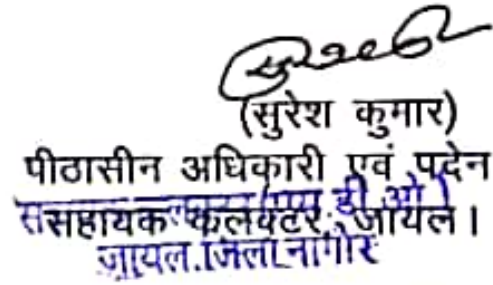 (सुरेश कुमार)
पीठासीन अधिकारी एवं पदेन
सहायक कलक्टर, जायल।
जायल जिला नागौर